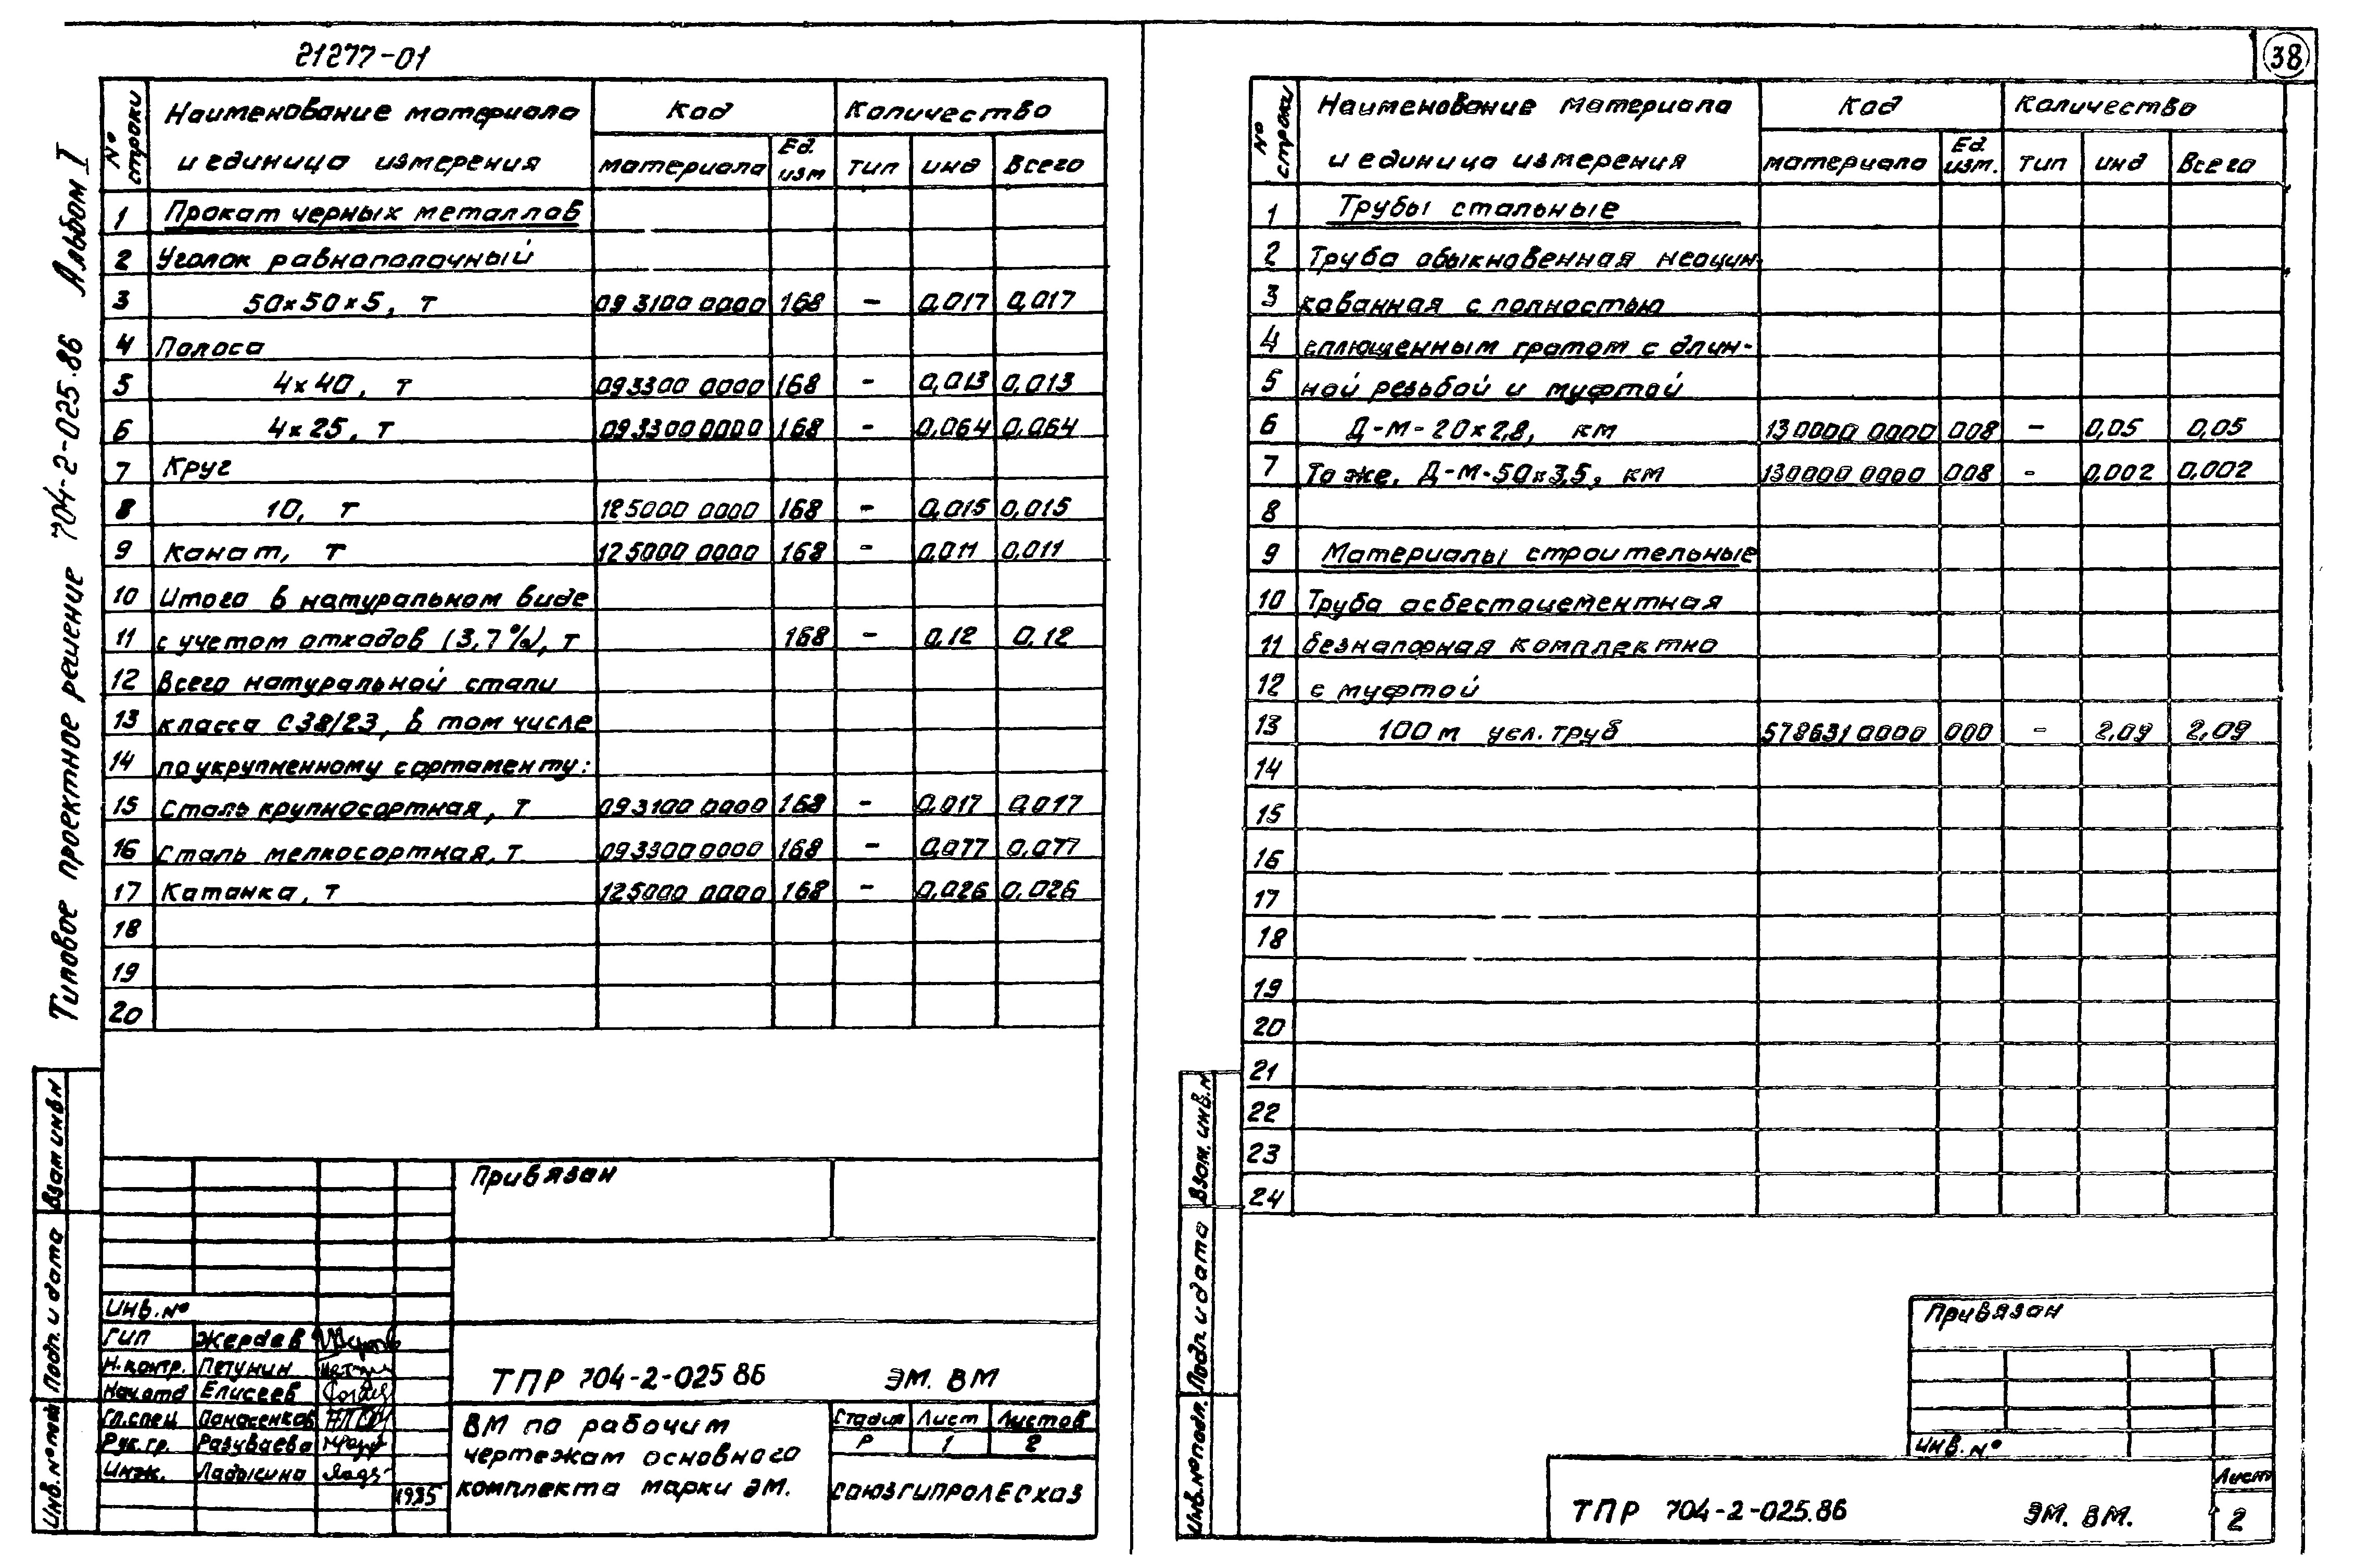 21277-01
38
Типовое проектное решение 704-2-025.86 Альбом I
№ строки Наименование материала и единица измерения Код Количество
материала Ед. изм тип инд всего
1 Прокат черных металлов
2 Уголок равнополочный
3 50х50х5, т 093100 0000 168 - 0,017 0,017
4 Полоса
5 4х40, т 093300 0000 168 - 0,013 0,013
6 4х25, т 093300 0000 168 - 0,064 0,064
7 Круг
8 10, т 125000 0000 168 - 0,015 0,015
9 Канат, т 125000 0000 168 - 0,011 0,011
10 Итого в натуральном виде
11 с учетом отходов (3,7%), т 168 - 0,12 0,12
12 Всего натуральной стали
13 класса С38/23, в том числе
14 по укрупненному сортаменту:
15 Сталь крупносортная, т 093100 0000 168 - 0,017 0,017
16 Сталь мелкосортная, т. 093300 0000 168 - 0,077 0,077
17 Катанка, т 125000 0000 168 - 0,026 0,026
18
19
20
Привязан
Инв. №
ГИП Жердев
Н.контр. Петунин
Нач отд Елисеев
Гл.спец Панасенков
Рук.гр. Разуваева
Инж. Ладысина
1985
ТПР 704-2-025 86 ЭМ. ВМ
ВМ по рабочим
чертежам основного
комплекта марки ЭМ.
Стадия Лист Листов
Р 1 2
СОЮЗГИПРОЛЕСХОЗ
Взам инв.№
Подп. и дата
Инв.№ подл
№ строки Наименование материала и единица измерения Код Количество
материала Ед. изм. тип инд Всего
1 Трубы стальные
2 Труба обыкновенная неоцин-
3 кованная с полностью
4 сплющенным гратом с длин-
5 ной резьбой и муфтой
6 Д-М-20х2,8, км 130000 0000 008 - 0,05 0,05
7 То же, Д-М-50х3,5, км 130000 0000 008 - 0,002 0,002
8
9 Материалы строительные
10 Труба асбестоцементная
11 безнапорная комплектно
12 с муфтой
13 100 м усл. труб 578631 0000 000 - 2,09 2,09
14
15
16
17
18
19
20
21
22
23
24
Привязан
Инв. №
ТПР 704-2-025.86 ЭМ. ВМ.
Лист
2
Взам. инв.№
Подп. и дата
Инв.№ подл.